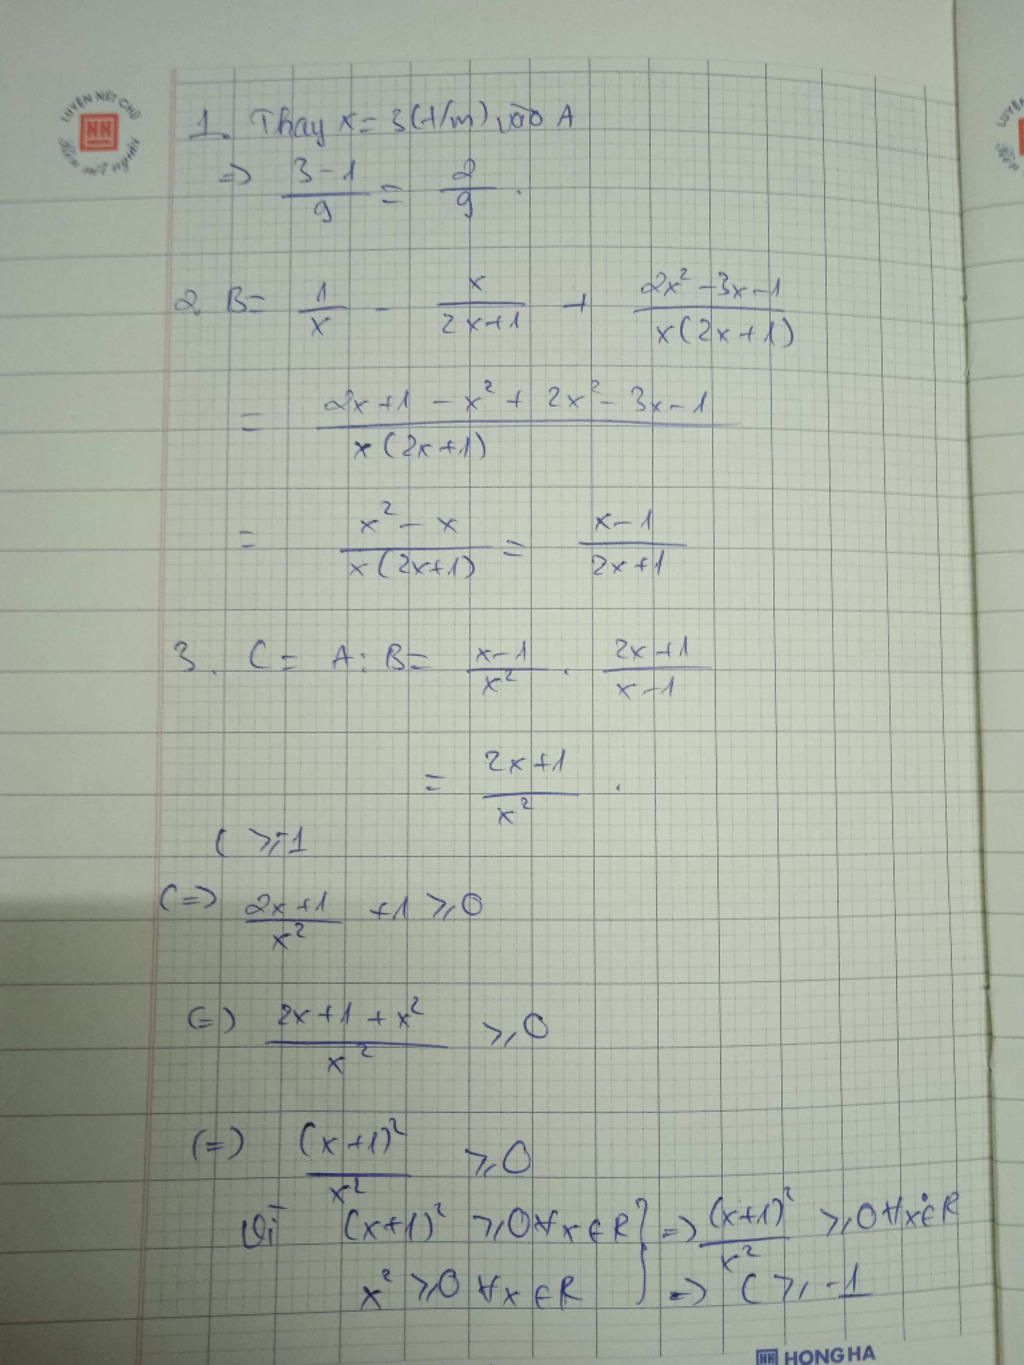 LUYỆN NÉT CHỮ
NN
Rèn nết người
1. Thay x = 3 (t/m) vào A
=> (3-1)/9 = 2/9.
2 B = 1/x - x/(2x+1) + (2x² - 3x - 1)/(x(2x+1))
= (2x+1 - x² + 2x² - 3x - 1)/(x(2x+1))
= (x² - x)/(x(2x+1)) = (x-1)/(2x+1)
3. C = A : B = (x-1)/x² . (2x+1)/(x-1)
= (2x+1)/x² .
C ⩾ -1
(=>) (2x+1)/x² + 1 ⩾ 0
(=) (2x+1+x²)/x² ⩾ 0
(=) (x+1)²/x² ⩾ 0
Vì (x+1)² ⩾ 0 ∀x∈R } => (x+1)²/x² ⩾ 0 ∀x∈R
x² ⩾ 0 ∀x∈R } => C ⩾ -1
NN HONG HA